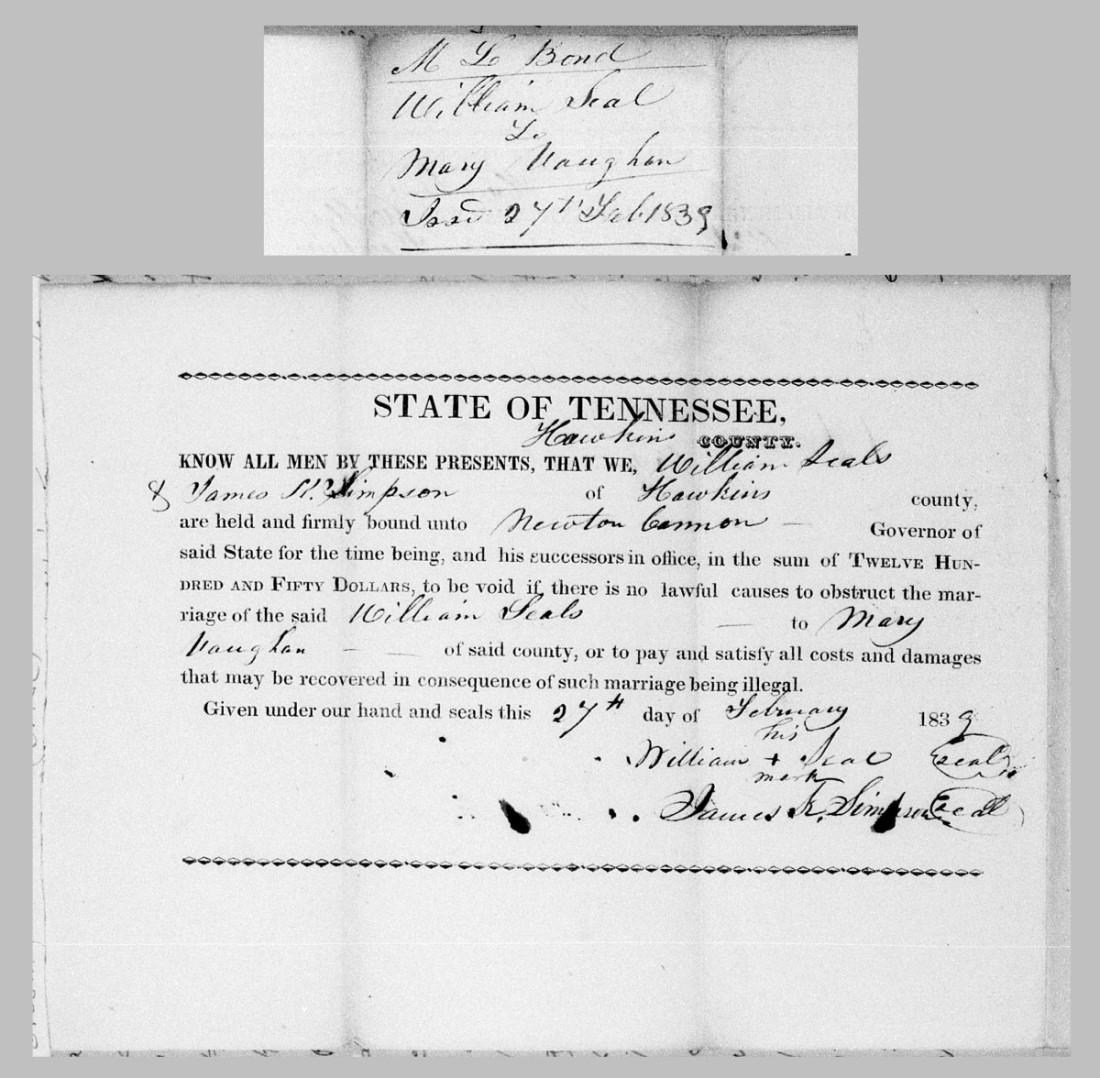 M L Bond
William Seal
To
Mary Vaughan
Issd 27th Feb. 1839
STATE OF TENNESSEE,
Hawkins COUNTY.
KNOW ALL MEN BY THESE PRESENTS, THAT WE, William Seals
& James K. Simpson of Hawkins county,
are held and firmly bound unto Newton Cannon — Governor of
said State for the time being, and his successors in office, in the sum of TWELVE HUN-
DRED AND FIFTY DOLLARS, to be void if there is no lawful causes to obstruct the mar-
riage of the said William Seals — to Mary
Vaughan — — of said county, or to pay and satisfy all costs and damages
that may be recovered in consequence of such marriage being illegal.
Given under our hand and seals this 27th day of February 1839
his
William + Seal (seal)
mark
James K. Simpson (seal)